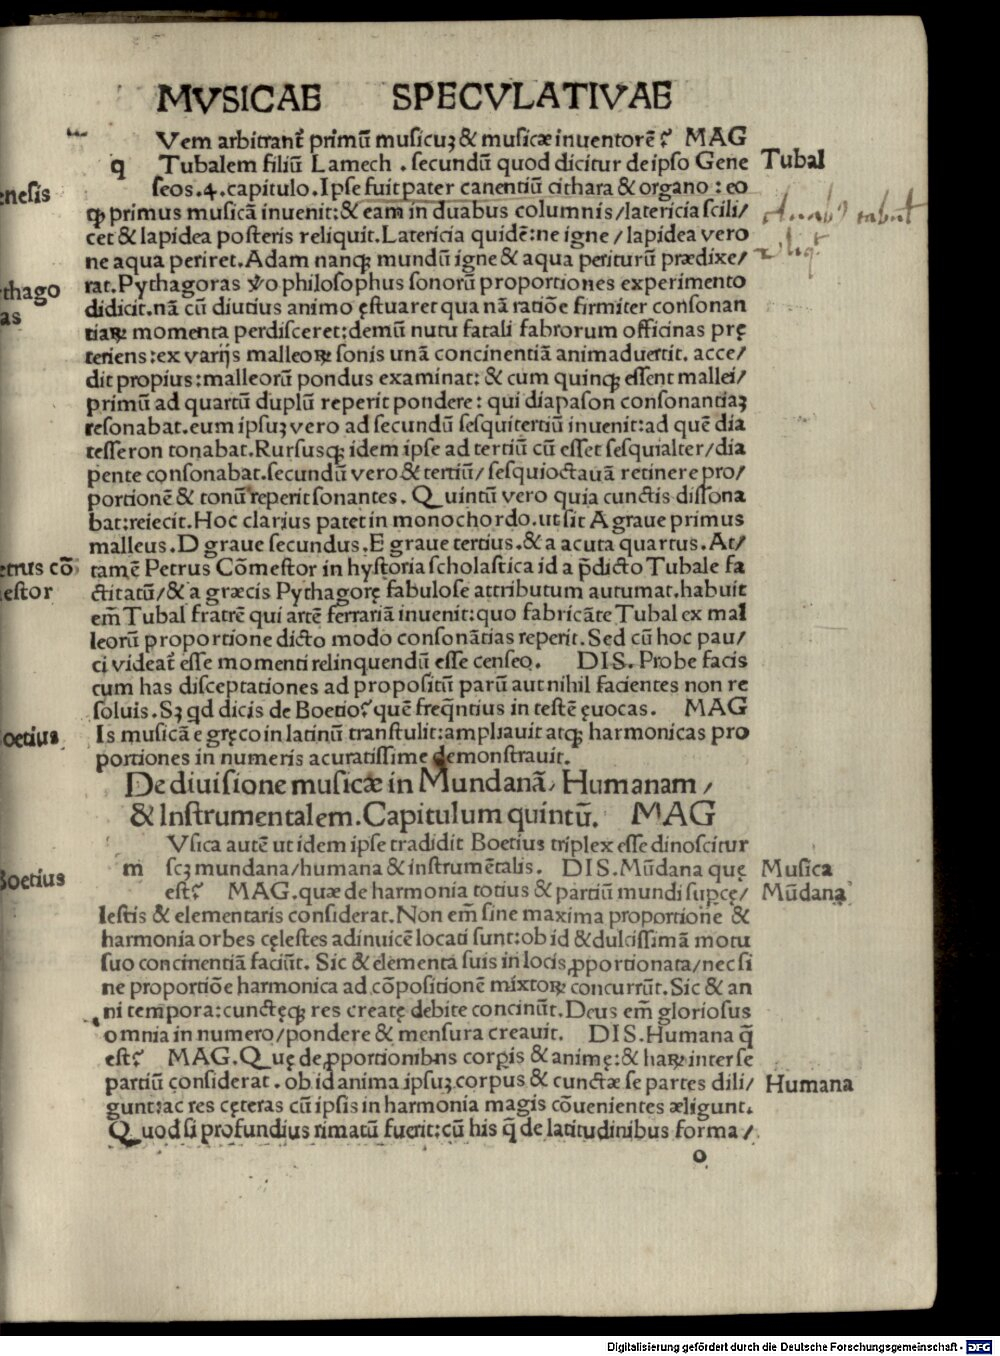 MVSICAE SPECVLATIVAE
Vem arbitrant᷑ primū musicuꝫ & musicæ inuentorē? MAG
q Tubalem filiū Lamech . secundū quod dicitur de ipso Gene
seos.4.capitulo.Ipse fuit pater canentiū cithara & organo : eo
ꝙ primus musicā inuenit:& eam in duabus columnis/latericia scili/
cet & lapidea posteris reliquit.Latericia quidē:ne igne / lapidea vero
ne aqua periret.Adam nanqꝫ mundū igne & aqua periturū prædixe/
rat.Pythagoras v̊o philosophus sonorū proportiones experimento
didicit.nā cū diutius animo ęstuaret qua nā ratiōe firmiter consonan
tiaꝝ momenta perdisceret:demū nutu fatali fabrorum officinas prę
teriens:ex varijs malleoꝝ sonis unā concinentiā animaduertit. acce/
dit propius:malleorū pondus examinat: & cum quinqꝫ essent mallei/
primū ad quartū duplū reperit pondere: qui diapason consonantiaꝫ
resonabat.eum ipsuꝫ vero ad secundū sesquitertiū inuenit:ad quē dia
tesseron tonabat.Rursusqꝫ idem ipse ad tertiū cū esset sesquialter/dia
pente consonabat.secundū vero & tertiū/ sesquioctauā retinere pro/
portionē & tonū reperit sonantes. Quintū vero quia cunctis dissona
bat:reiecit.Hoc clarius patet in monochordo.ut sit A graue primus
malleus.D graue secundus.E graue tertius.& a acuta quartus.At/
tamē Petrus Cōmestor in hystoria scholastica id a p̄dicto Tubale fa
ctitatū/& a græcis Pythagorę fabulose attributum autumat.habuit
em̄ Tubal fratrē qui artē ferrariā inuenit:quo fabricāte Tubal ex mal
leorū proportione dicto modo consonātias reperit.Sed cū hoc pau/
ci videat᷑ esse momenti relinquendū esse censeo. DIS. Probe facis
cum has disceptationes ad propositū parū aut nihil facientes non re
soluis.Sꝫ qd dicis de Boetio? quē freq̄ntius in testē ęuocas. MAG
Is musicā e gręco in latinū transtulit:ampliauit atqꝫ harmonicas pro
portiones in numeris acuratissime demonstrauit.
De diuisione musicæ in Mundanā, Humanam /
& Instrumentalem.Capitulum quintū. MAG
Vsica autē ut idem ipse tradidit Boetius triplex esse dinoscitur
m scꝫ mundana/humana & instrumētalis. DIS.Mūdana quę
est? MAG.quæ de harmonia totius & partiū mundi supcę/
lestis & elementaris considerat.Non em̄ sine maxima proportione &
harmonia orbes cęlestes adinuicē locati sunt:ob id & dulcissimā motu
suo concinentiā faciūt. Sic & elementa suis in locis ꝓportionata/nec si
ne proportiōe harmonica ad cōpositionē mixtoꝝ concurrūt.Sic & an
ni tempora:cunctęqꝫ res creatę debite concinūt.Deus em̄ gloriosus
omnia in numero/pondere & mensura creauit. DIS.Humana q̄
est? MAG.Quę de ꝓportionibus corpis & animę:& haꝝ inter se
partiū considerat. ob id anima ipsuꝫ corpus & cunctæ se partes dili/
gunt:ac res cęteras cū ipsis in harmonia magis cōuenientes æligunt.
Quod si profundius rimatū fuerit:cū his q̄ de latitudinibus forma/
o
Tubal
Musica
Mūdana
Humana
enesis
thago
as
etrus cō
estor
oetius
Boetius
Digitalisierung gefördert durch die Deutsche Forschungsgemeinschaft - DFG